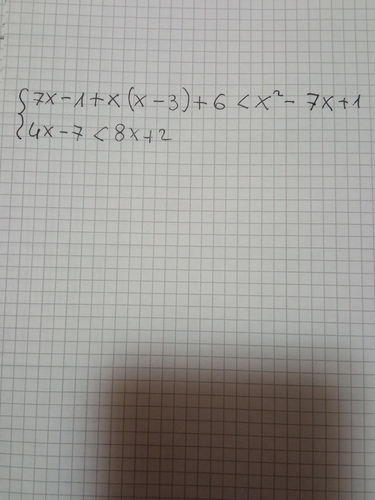 {7x-1+x(x-3)+6<x²-7x+1
4x-7<8x+2